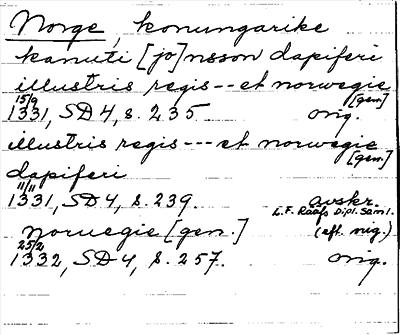 Norge, konungarike
kanuti [jo]nsson dapiferi
illustris regis -- et norwegie
[gen]
15/9
1331, SD 4, s. 235 orig.
illustris regis --- et norwegie
[gen]
dapiferi
11/11
1331, SD 4, s. 239. avskr.
L.F. Rääfs Dipl. Saml.
Norwegie [gen.] (eft. orig.)
25/2
1332, SD 4, s. 257. orig.